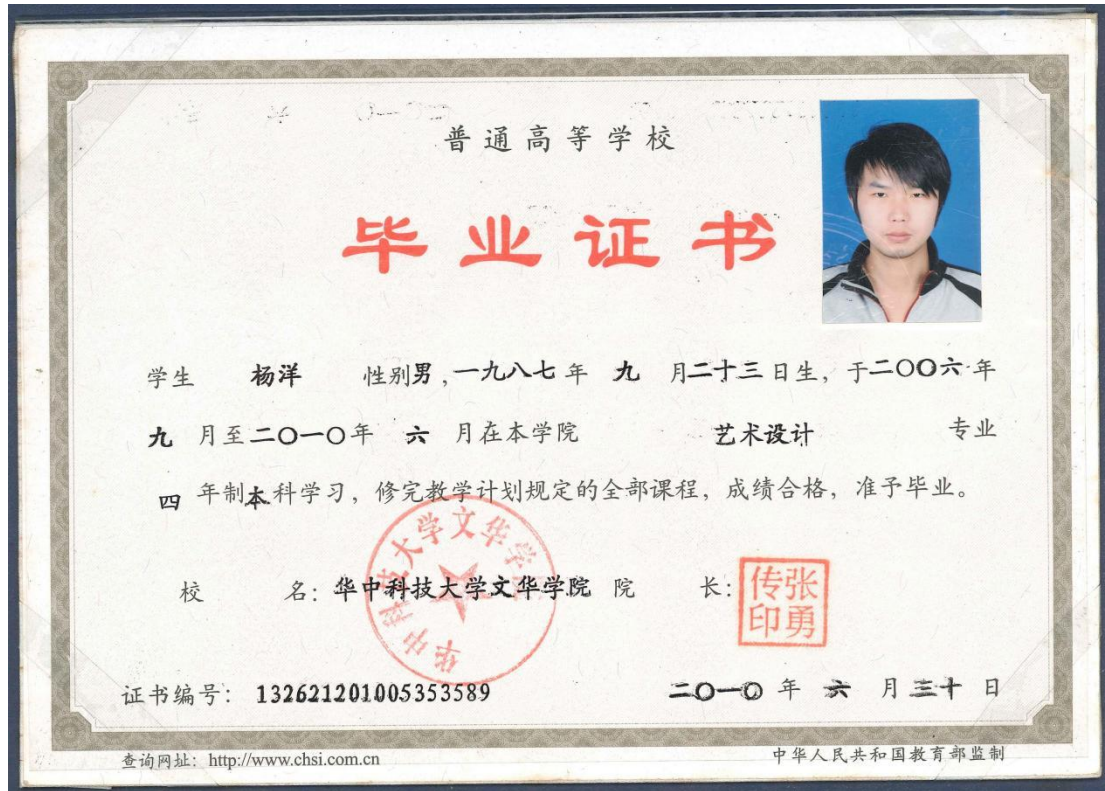 普通高等学校
毕业证书
学生 杨洋 性别男,一九八七年 九 月二十三日生,于二〇〇六年
九 月至二〇一〇年 六 月在本学院 艺术设计 专业
四 年制本科学习,修完教学计划规定的全部课程,成绩合格,准予毕业。
华中科技大学文华学院
校 名:华中科技大学文华学院 院 长:
张勇传印
证书编号:132621201005353589 二〇一〇 年 六 月 三十 日
查询网址:http://www.chsi.com.cn 中华人民共和国教育部监制